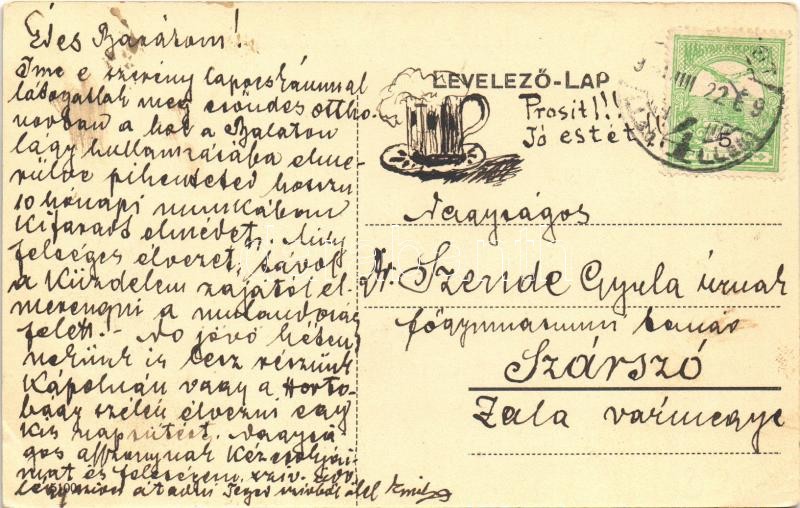 Édes Barátom!
Ime e szerény lapocskámmal
látogatlak meg csöndes ottho-
nodban a hol a Balaton
lágy hullámzásába elme-
rülve piheníted hosszu
10 hónapi munkában
kifáradt elmédet. Mily
felséges élvezet, távol
a Küzdelem zajától el-
merengni a mulandóság
felett! - No jövő héten
nekünk is lesz részünk
Kápolnán vagy a Horto-
bágy szélén élvezni egy
kis napsütést. Nagysá-
gos asszonynak kézcsókjai-
mat és feleségem sziv. üdv.
átadni Téged szivből ölel Emil
5100
LEVELEZŐ-LAP
Prosit!!!
Jó estét!!
MAGYAR KIR. POSTA
22
Nagyságos
Dr. Szende Gyula úrnak
főgymnasiumi tanár
Szárszó
Zala vármegye